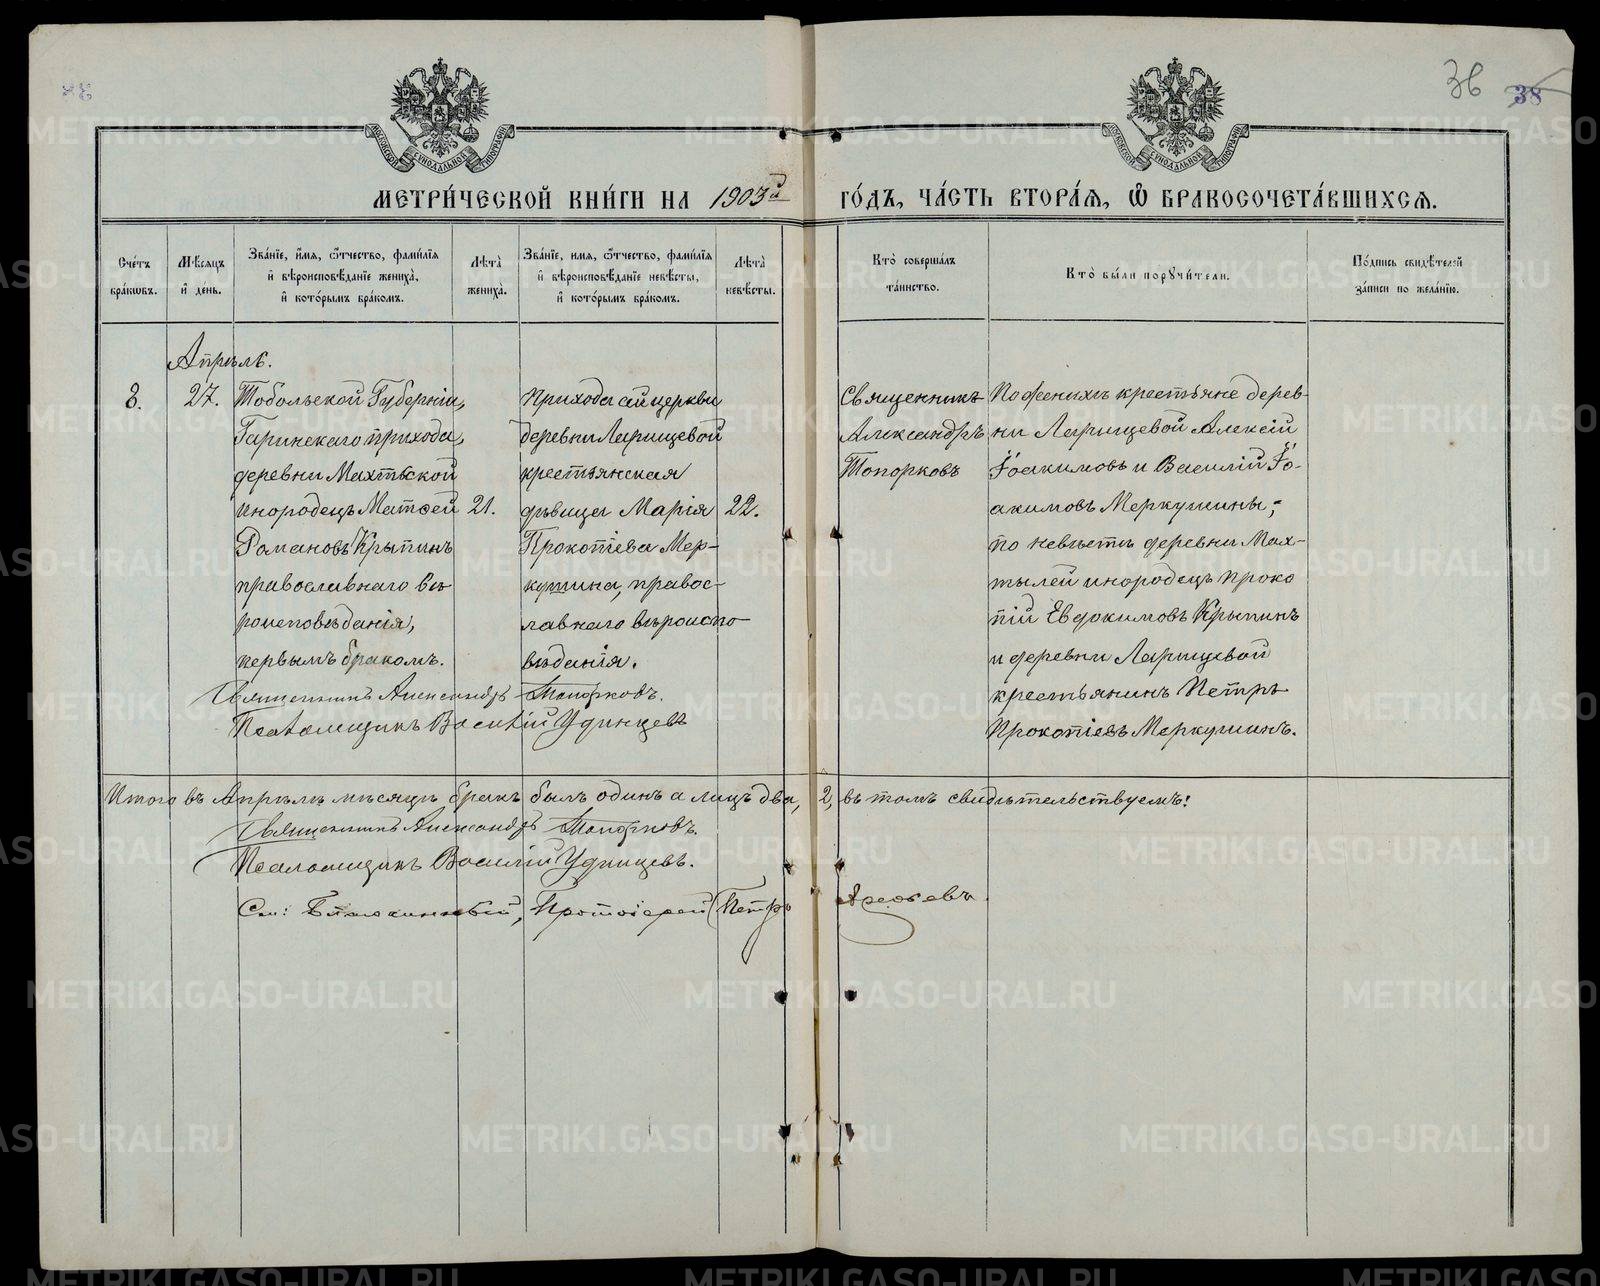 36 38
МОСКОВСКОЙ СѴНОДАЛЬНОЙ ТИПОГРАФІИ
МОСКОВСКОЙ СѴНОДАЛЬНОЙ ТИПОГРАФІИ
МЕТРИ́ЧЕСКОЙ КНИ́ГИ НА 1903й ГО́ДЪ, ЧА́СТЬ ВТОРА́Я, Ѿ БРАКОСОЧЕТА́ВШИХСЯ.
Сче́тъ бра́ковъ.
Мѣсяцъ и҆ день.
Зва́нїе, и҆́мя, ѻ҆́тчество, фами́лїя и҆ вѣроисповѣ́данїе жениха̀, и҆ кото́рымъ бра́комъ.
Лѣта̀ жениха̀.
Зва́нїе, имя, ѻ҆́тчество, фами́лїя и҆ вѣроисповѣ́данїе невѣ́сты, и҆ кото́рымъ бра́комъ.
Лѣта̀ невѣ́сты.
Кто̀ соверша́лъ та́инство.
Кто̀ бы́ли порꙋчи́тели.
По́дпись свидѣ́телей за́писи по жела́нїю.
Апрѣль.
3.
27.
Тобольской Губерніи,
Гаринскаго прихода,
деревни Махтылской
инородецъ Матѳей
Романовъ Крыпинъ
православнаго вѣ-
роисповѣданія,
первымъ бракомъ.
21.
Прихода сей церкви
деревни Ларищевой
крестьянская
дѣвица Марія
Прокопіева Мер-
кушина, правос-
лавнаго вѣроиспо-
вѣданія.
22.
Священникъ
Александръ
Топорковъ
По женихѣ крестьяне дерев-
ни Ларищевой Алексій
Іоакимовъ и Василій Іо-
акимовъ Меркушины;
по невѣстѣ деревни Мах-
тылей инородецъ Проко
пій Евдокимовъ Крыпинъ
и деревни Ларищевой
крестьянинъ Петръ
Прокопіевъ Меркушинъ.
Священникъ Александръ Топорковъ.
Псаломщикъ Василій Удинцевъ
Итого въ Апрѣлѣ мѣсяцѣ бракъ былъ одинъ а лицъ два, 2, въ томъ свидѣтельствуемъ:
Священникъ Александръ Топорковъ.
Псаломщикъ Василій Удинцевъ.
См: Благочинный, Протоіерей Петръ
METRIKI.GASO-URAL.RU